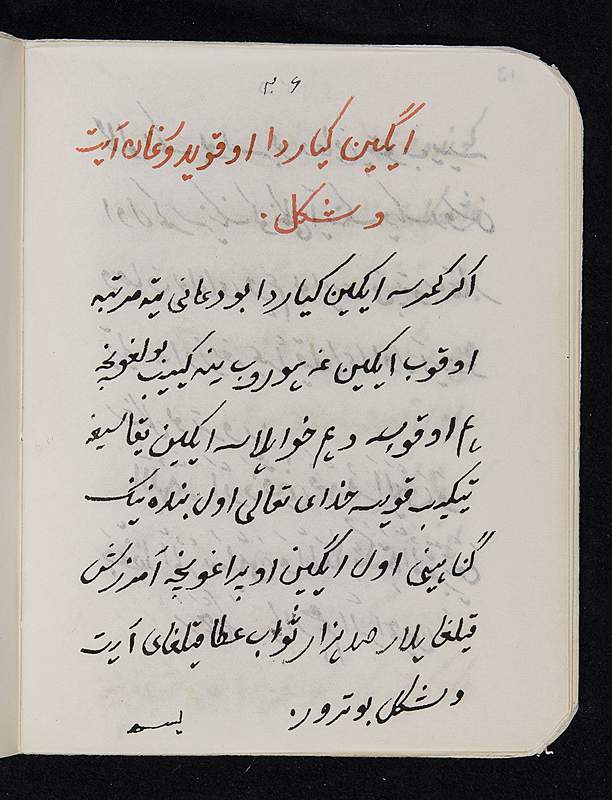 ۲۶
ایگین کیاردا اوقویدوغان آیت
و شکل.
اگر کمرسه ایکین کیاردا بو دعانی یته مرتبه
اوقوب ایکین غه یوروب ینه کییب بولغونچه
اوقوسه ایکین یقاسیغه
تیکیب قویسه خدای تعالی اول بنده نینک
گناهینی اول ایگین اوپراغونچه آمرزش
قیلغایلار صد هزار ثواب عطا قیلغای آیت
و شکل بو ترور.
بسم